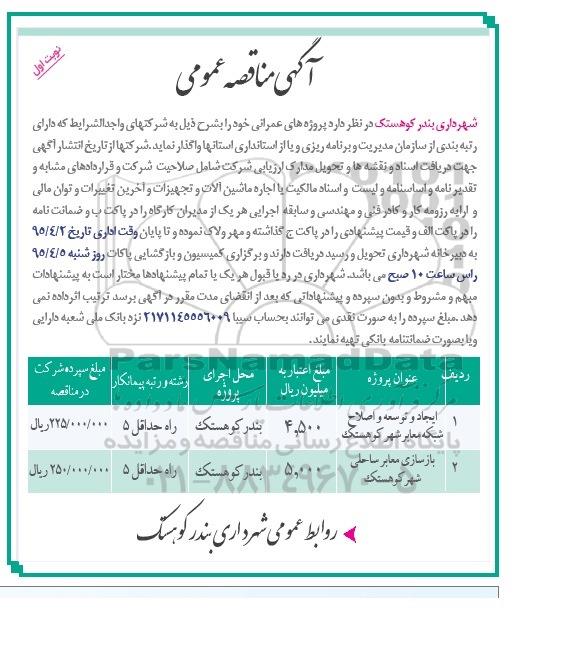 نوبت اول
آگهی مناقصه عمومی
شهرداری بندر کوهستک در نظر دارد پروژه های عمرانی خود را بشرح ذیل به شرکتهای واجدالشرایط که دارای
رتبه بندی از سازمان مدیریت و برنامه ریزی و یا از استانداری استانها واگذار نماید. شرکتها از تاریخ انتشار آگهی
جهت دریافت اسناد و نقشه ها و تحویل مدارک ارزیابی شرکت شامل صلاحیت شرکت و قراردادهای مشابه و
تقدیر نامه و اساسنامه و لیست و اسناد مالکیت یا اجاره ماشین آلات و تجهیزات و آخرین تغییرات و توان مالی
و ارایه رزومه کار و کادر فنی و مهندسی و سابقه اجرایی هر یک از مدیران کارگاه را در پاکت ب و ضمانت نامه
را در پاکت الف و قیمت پیشنهادی را در پاکت ج گذاشته و مهر ولاک نموده و تا پایان وقت اداری تاریخ ۹۵/۴/۲
به دبیرخانه شهرداری تحویل و رسید دریافت دارند و برگزاری کمیسیون و بازگشایی پاکات روز شنبه ۹۵/۴/۵
راس ساعت ۱۰ صبح می باشد. شهرداری در رد یا قبول هر یک یا تمام پیشنهادها مختار است به پیشنهادات
مبهم و مشروط و بدون سپرده و پیشنهاداتی که بعد از انقضای مدت مقرر در آگهی برسد ترتیب اثر داده نمی
دهد. مبلغ سپرده را به صورت نقدی می توانند بحساب سیبا ۲۱۷۱۱۴۵۵۵۶۰۰۹ نزد بانک ملی شعبه دارایی
و یا بصورت ضمانتنامه بانکی تهیه نمایند.
ردیف عنوان پروژه مبلغ اعتبار به میلیون ریال محل اجرای پروژه رشته و رتبه پیمانکار مبلغ سپرده شرکت در مناقصه
۱ ایجاد و توسعه و اصلاح شبکه معابر شهر کوهستک ۴,۵۰۰ بندر کوهستک راه حداقل ۵ ۲۲۵/۰۰۰/۰۰۰ ریال
۲ بازسازی معابر ساحلی شهر کوهستک ۵,۰۰۰ بندر کوهستک راه حداقل ۵ ۲۵۰/۰۰۰/۰۰۰ ریال
روابط عمومی شهرداری بندر کوهستک
ParsNamadData
پایگاه اطلاع رسانی مناقصه و مزایده
۰۲۱-۸۸۳۴۹۶۷۰-۵